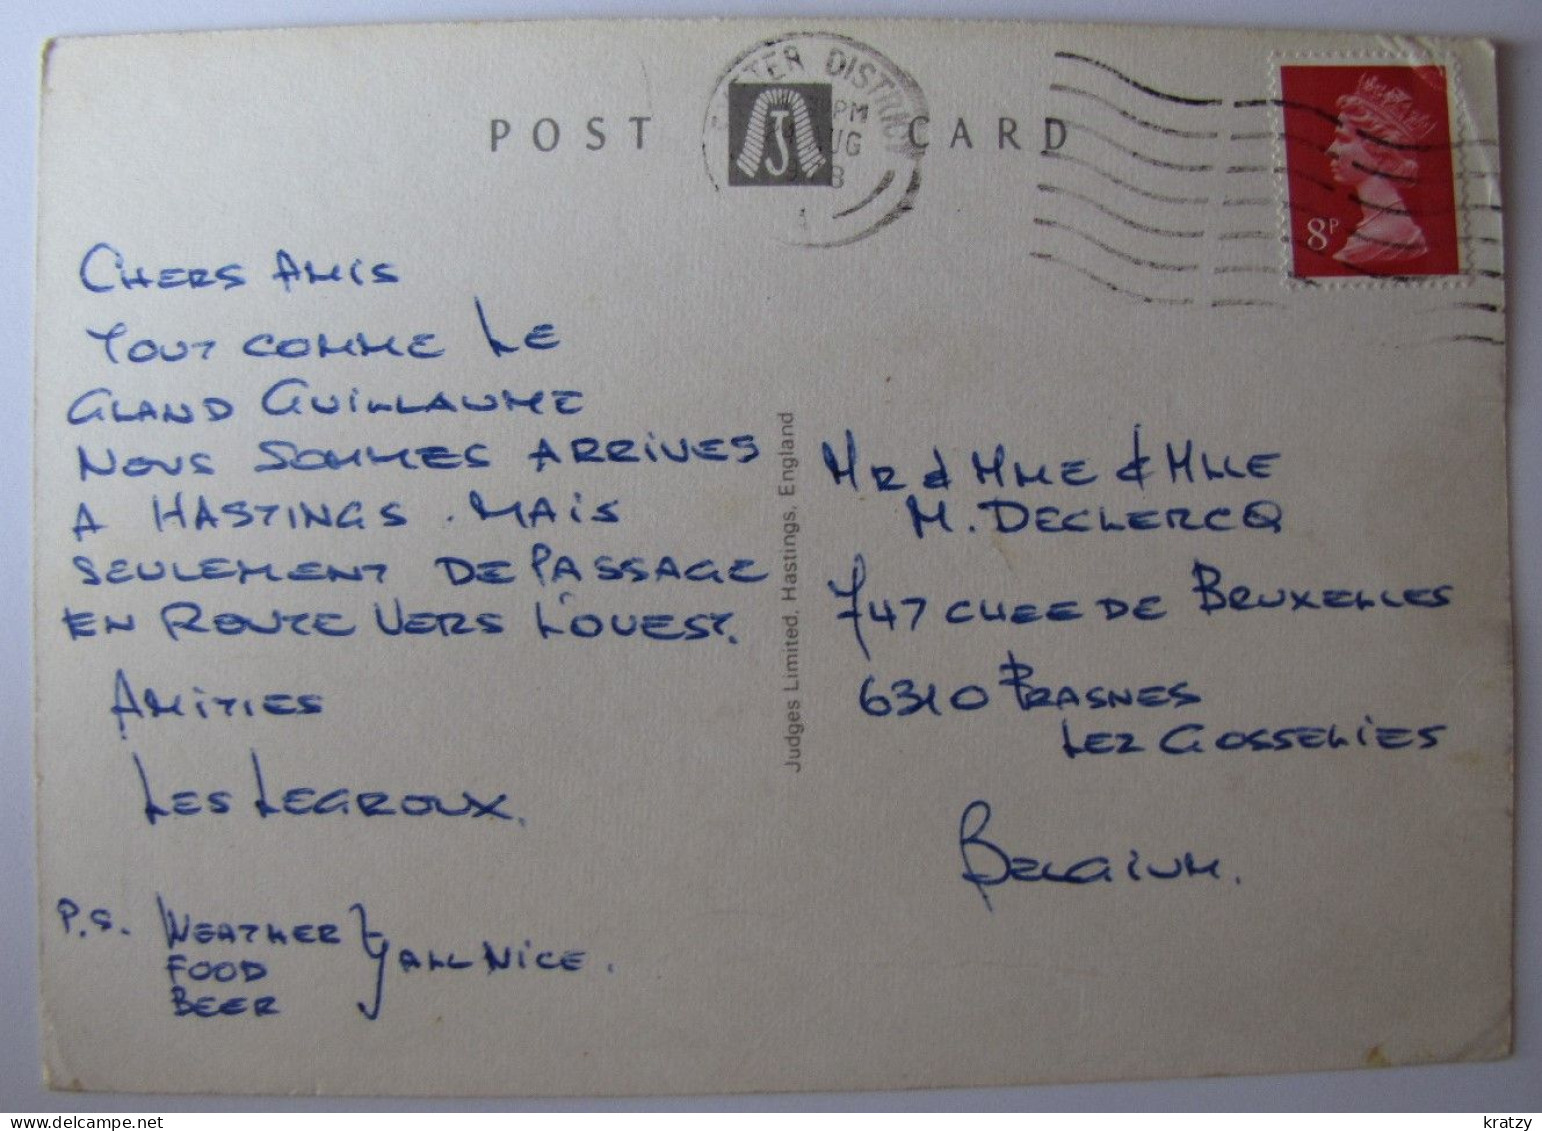 POST CARD
DISTRICT
PM
UG
8P
CHERS AMIS
TOUT COMME LE
GLAND GUILLAUME
NOUS SOMMES ARRIVES
A HASTINGS. MAIS
SEULEMENT DE PASSAGE
EN ROUTE VERS L'OUEST.
AMITIES
LES LEGROUX.
P.S. WEATHER
FOOD
BEER
ALL NICE.
Judges Limited, Hastings, England
MR & MME & MLLE
M. DECLERCQ
747 CHEE DE BRUXELLES
6310 FRASNES
LEZ GOSSELIES
BELGIUM.
kratzy